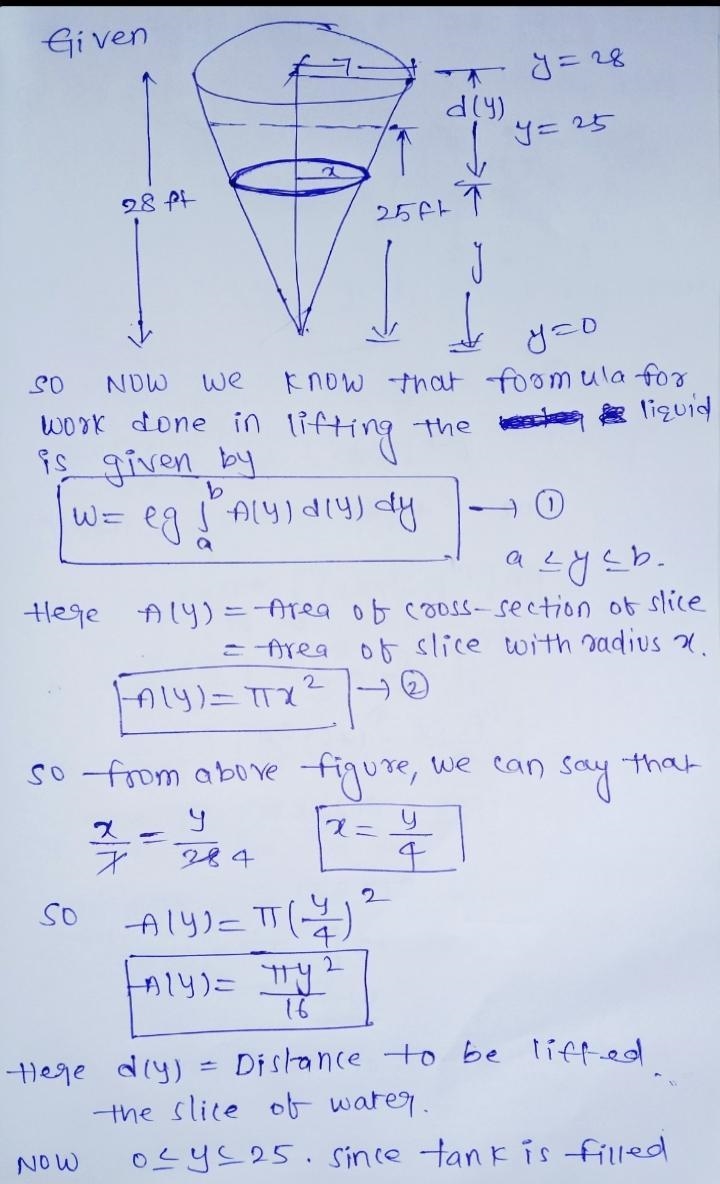 Given
7
y = 28
d(y)
y = 25
x
28 ft
25ft
y
y=0
so NOW we know that formula for
work done in lifting the liquid
is given by
W = ρg ∫ₐᵇ A(y) d(y) dy → ①
a ≤ y ≤ b.
Here A(y) = Area of cross-section of slice
= Area of slice with radius x.
A(y) = πx² → ②
so from above figure, we can say that
x/7 = y/28 4 x = y/4
so A(y) = π(y/4)²
A(y) = πy²/16
Here d(y) = Distance to be lifted
the slice of water.
NOW 0 ≤ y ≤ 25. since tank is filled